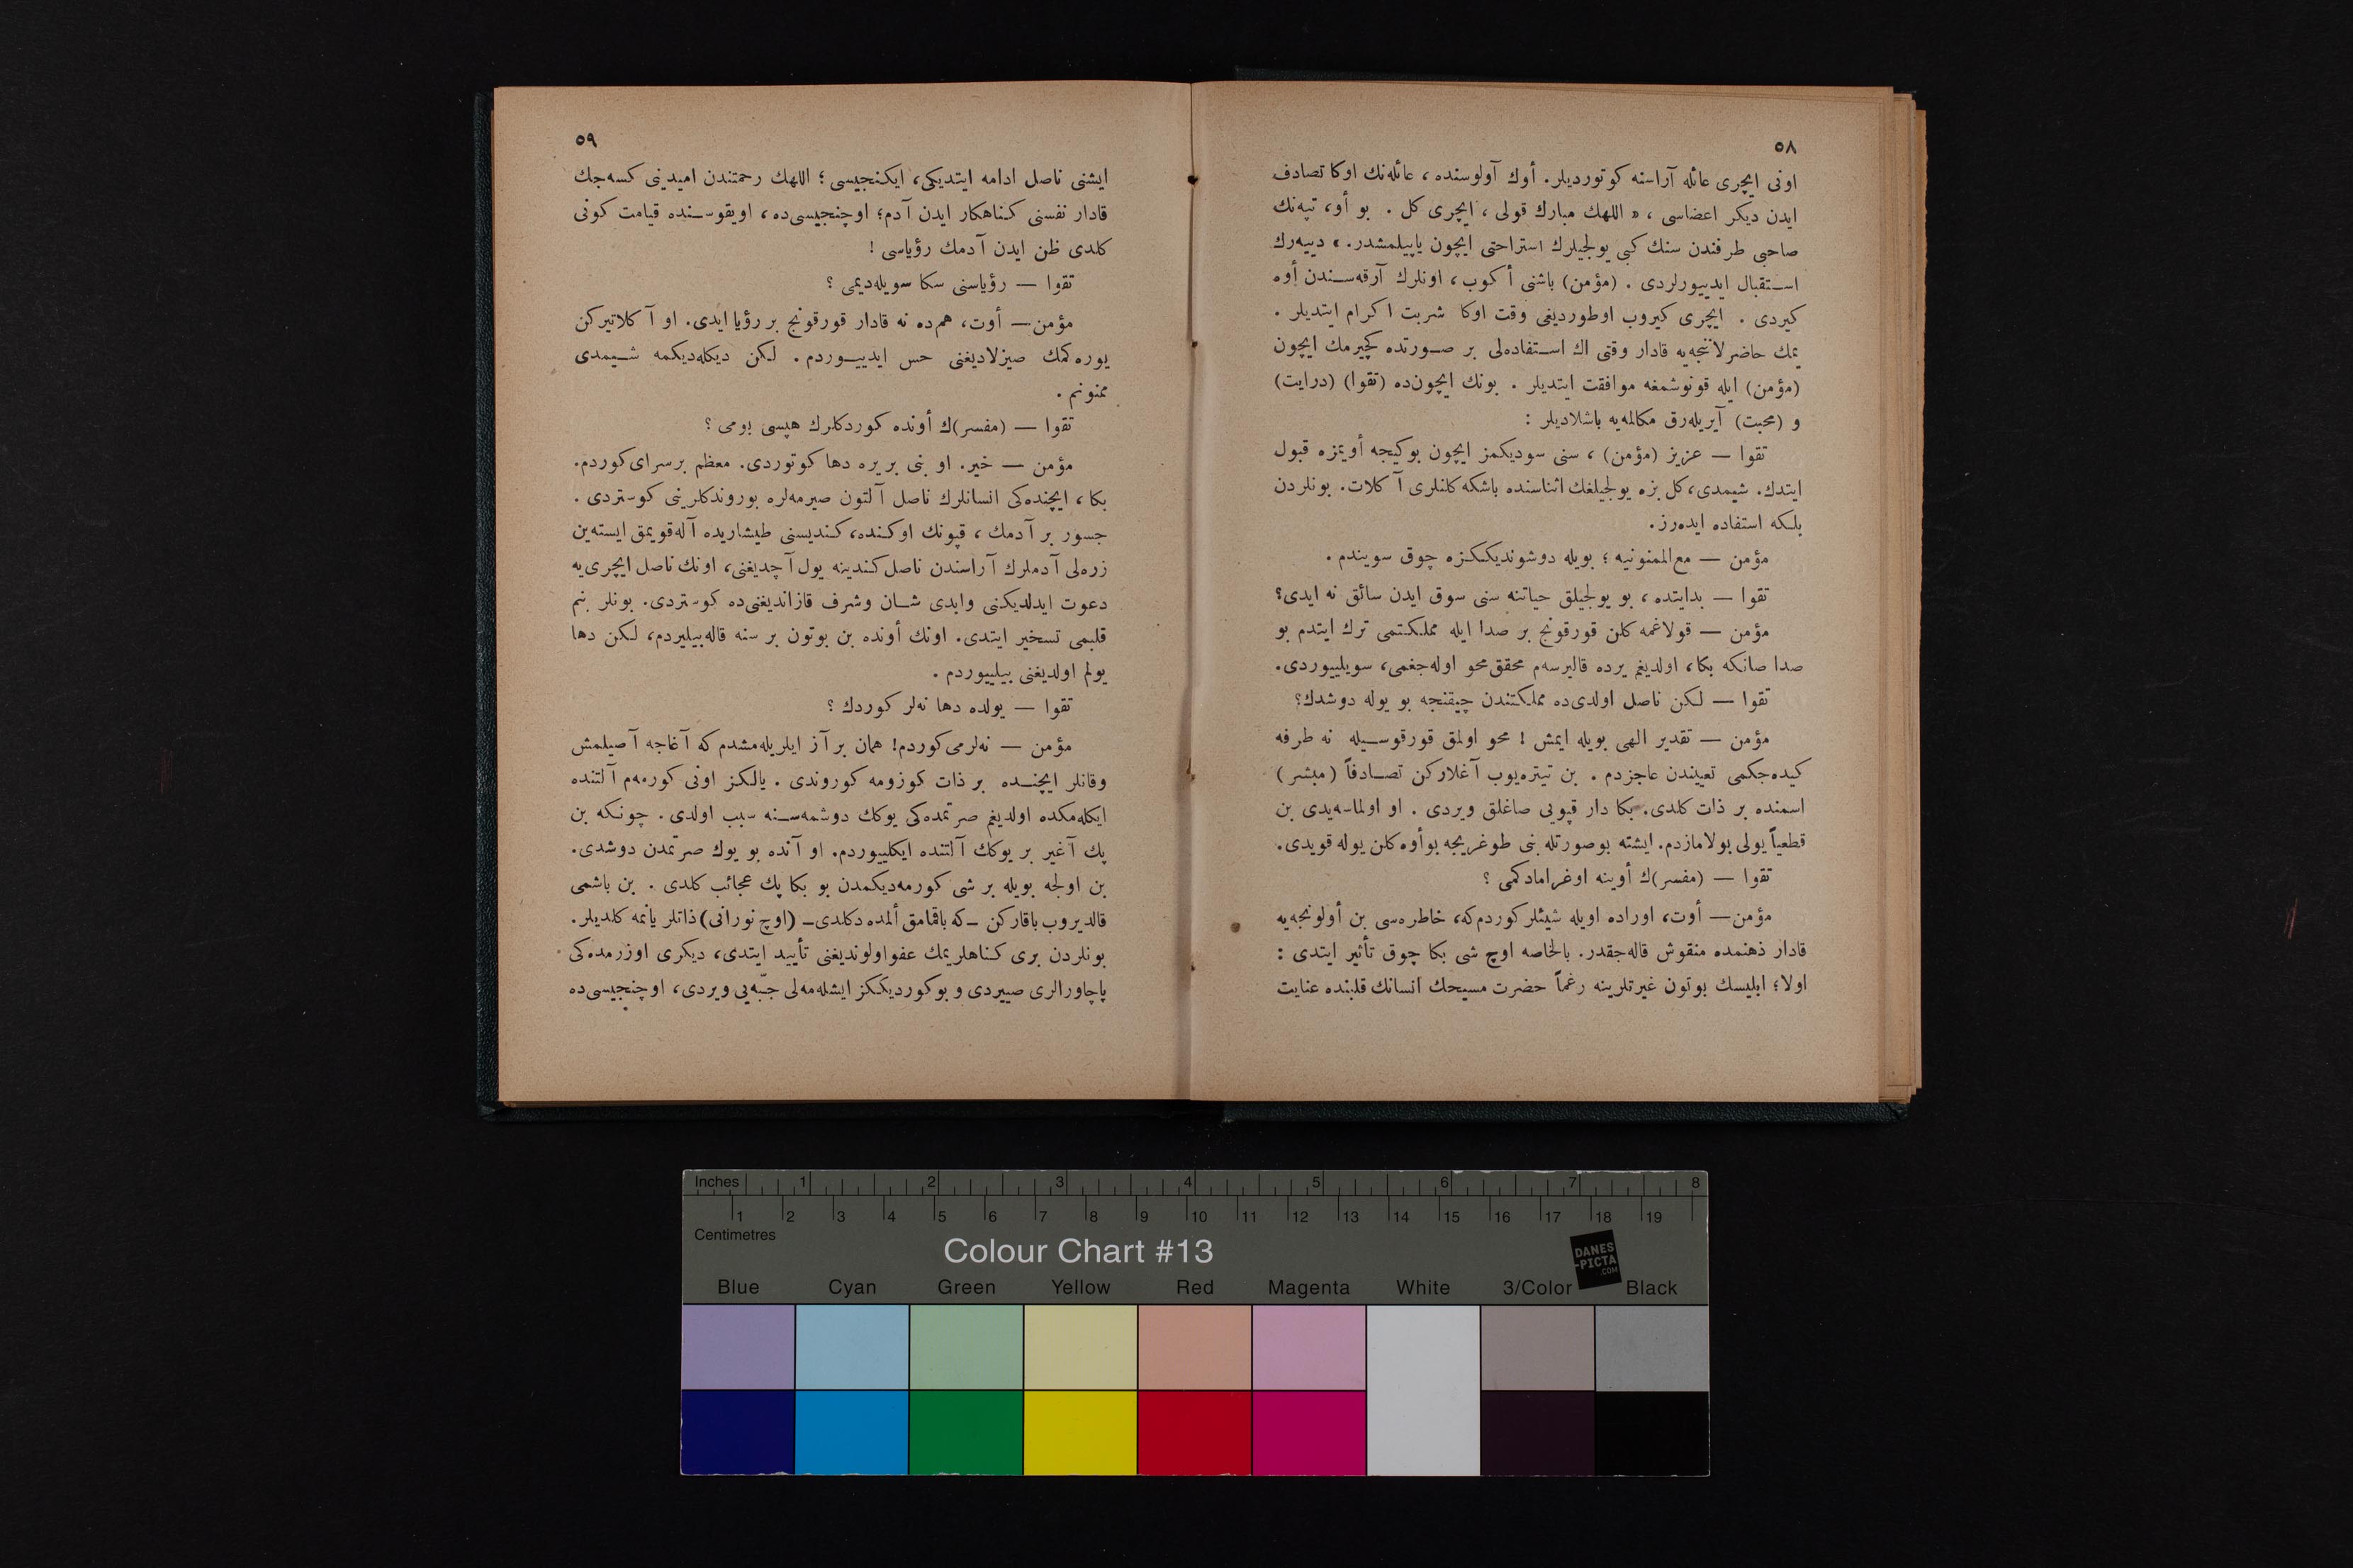 ٥٨
اونى ایچرى عائله آراسنه كوتوردیلر. أوك آولوسنده ، عائله‌نك اوكا تصادف
ایدن دیكر اعضاسى ، « اللهك مبارك قولى ، ایچرى كل . بو أو، تپه‌نك
صاحبى طرفندن سنك كبى یولجیلرك استراحتى ایچون یاپیلمشدر. » دییه‌رك
استقبال ایدییورلردى . (مؤمن) باشنى أكوب ، اونلرك آرقه‌سندن أوه
كیردى . ایچرى كیروب اوطوردیغى وقت اوكا شربت اكرام ایتدیلر .
یمك حاضرلاننجه‌یه قادار وقتى اك استفاده‌لى بر صورتده كچیرمك ایچون
(مؤمن) ایله قونوشمغه موافقت ایتدیلر . بونك ایچون‌ده (تقوا) (درایت)
و (محبت) آیریله‌رق مكالمه‌یه باشلادیلر :
تقوا — عزیز (مؤمن) ، سنى سودیكمز ایچون بوكیجه أویمزه قبول
ایتدك. شیمدى،كل بزه یولجیلغك اثناسنده باشكه كلنلرى آكلات. بونلردن
بلكه استفاده ایده‌رز.
مؤمن — مع‌الممنونیه ؛ بویله دوشوندیككزه چوق سویندم .
تقوا — بدایتده ، بو یولجیلق حیاتنه سنى سوق ایدن سائق نه ایدى؟
مؤمن — قولاغمه كلن قورقونج بر صدا ایله مملكتمى ترك ایتدم بو
صدا صانكه بكا، اولدیغم یرده قالیرسه‌م محقق محو اوله‌جغمى، سویلییوردى.
تقوا — لكن ناصل اولدى‌ده مملكتندن چیقنجه بو یوله دوشدك؟
مؤمن — تقدیر الهى بویله ایمش ! محو اولمق قورقوسیله نه طرفه
كیده‌جكمى تعییندن عاجزدم . بن تیتره‌یوب آغلاركن تصادفاً (مبشر)
اسمنده بر ذات كلدى. بكا دار قپویى صاغلق ویردى . او اولماسه‌یدى بن
قطعیاً یولى بولامازدم. ایشته بوصورتله بنى طوغریجه بوأوه كلن یوله قویدى.
تقوا — (مفسر)ك أوینه اوغرامادكمى ؟
مؤمن— أوت، اوراده اویله شیئلر كوردم‌كه، خاطره‌سى بن أولونجه‌یه
قادار ذهنمده منقوش قاله‌جقدر. بالخاصه اوچ شى بكا چوق تأثیر ایتدى :
اولا؛ ابلیسك بوتون غیرتلرینه رغماً حضرت مسیحك انسانك قلبنده عنایت
٥٩
ایشنى ناصل ادامه ایتدیكى، ایكنجیسى ؛ اللهك رحمتندن امیدینى كسه‌جك
قادار نفسنى كناهكار ایدن آدم؛ اوچنجیسى‌ده ، اویقوسنده قیامت كونى
كلدى ظن ایدن آدمك رؤیاسى !
تقوا — رؤیاسنى سكا سویله‌دیمى ؟
مؤمن— أوت، هم‌ده نه قادار قورقونج بر رؤیا ایدى. او آكلاتیركن
یوره‌كمك صیزلادیغنى حس ایدییوردم . لكن دیكله‌دیكمه شیمدى
ممنونم .
تقوا — (مفسر)ك أونده كوردكلرك هپسى بومى ؟
مؤمن — خیر. او بنى بریره دها كوتوردى. معظم برسراى‌كوردم.
بكا ، ایچنده‌كى انسانلرك ناصل آلتون صیرمه‌لره بوروندكلرینى كوستردى .
جسور بر آدمك ، قپونك اوكنده، كندیسنى طیشاریده آله‌قویمق ایسته‌ین
زره‌لى آدملرك آراسندن ناصل كندینه یول آچدیغنى، اونك ناصل ایچرى‌یه
دعوت ایدلدیكنى وابدى شان وشرف قازاندیغنى‌ده كوستردى. بونلر بنم
قلبمى تسخیر ایتدى. اونك أونده بن بوتون بر سنه قاله‌بیلیردم، لكن دها
یولم اولدیغنى بیلییوردم .
تقوا — یولده دها نه‌لر كوردك ؟
مؤمن — نه‌لرمى‌كوردم! همان بر آز ایلریله‌مشدم كه آغاجه آصیلمش
وقانلر ایچنده بر ذات كوزومه كوروندى . یالكز اونى كورمه‌م آلتنده
ایكله‌مكده اولدیغم صرتمده‌كى یوكك دوشمه‌سنه سبب اولدى . چونكه بن
پك آغیر بر یوكك آلتنده ایكلییوردم. او آنده بو یوك صرتمدن دوشدى.
بن اولجه بویله بر شى كورمه‌دیكمدن بو بكا پك عجائب كلدى . بن باشمى
قالدیروب باقاركن –كه باقمامق ألمده دكلدى– (اوچ نورانى) ذاتلر یانمه كلدیلر.
بونلردن برى كناهلریمك عفواولوندیغنى تأیید ایتدى، دیكرى اوزرمده‌كى
پاچاورالرى صییردى و بوكوردیككز ایشله‌مه‌لى جبّه‌یى ویردى، اوچنجیسى‌ده
Inches 1 2 3 4 5 6 7 8
1 2 3 4 5 6 7 8 9 10 11 12 13 14 15 16 17 18 19
Centimetres
Colour Chart #13
DANES
-PICTA
.COM
Blue Cyan Green Yellow Red Magenta White 3/Color Black